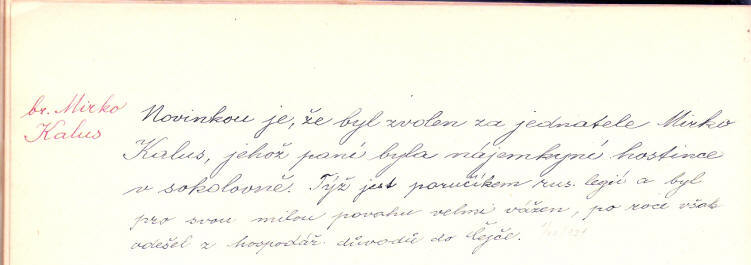 br. Mirko
Kalus
Novinkou je, že byl zvolen za jednatele Mirko
Kalus, jehož paní byla nájemkyní hostince
v sokolovně. Týž jest poručíkem rus. legií a byl
pro svou milou povahu velmi vážen, po roce však
odešel z hospodář. důvodů do Čejče.